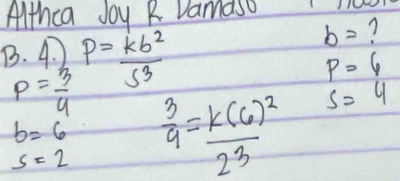 Althea Joy R. Damaso
B. 4.) P = kb²/s³
P = 3/4
b = 6
s = 2
3/4 = k(6)²/2³
b = ?
P = 6
s = 4